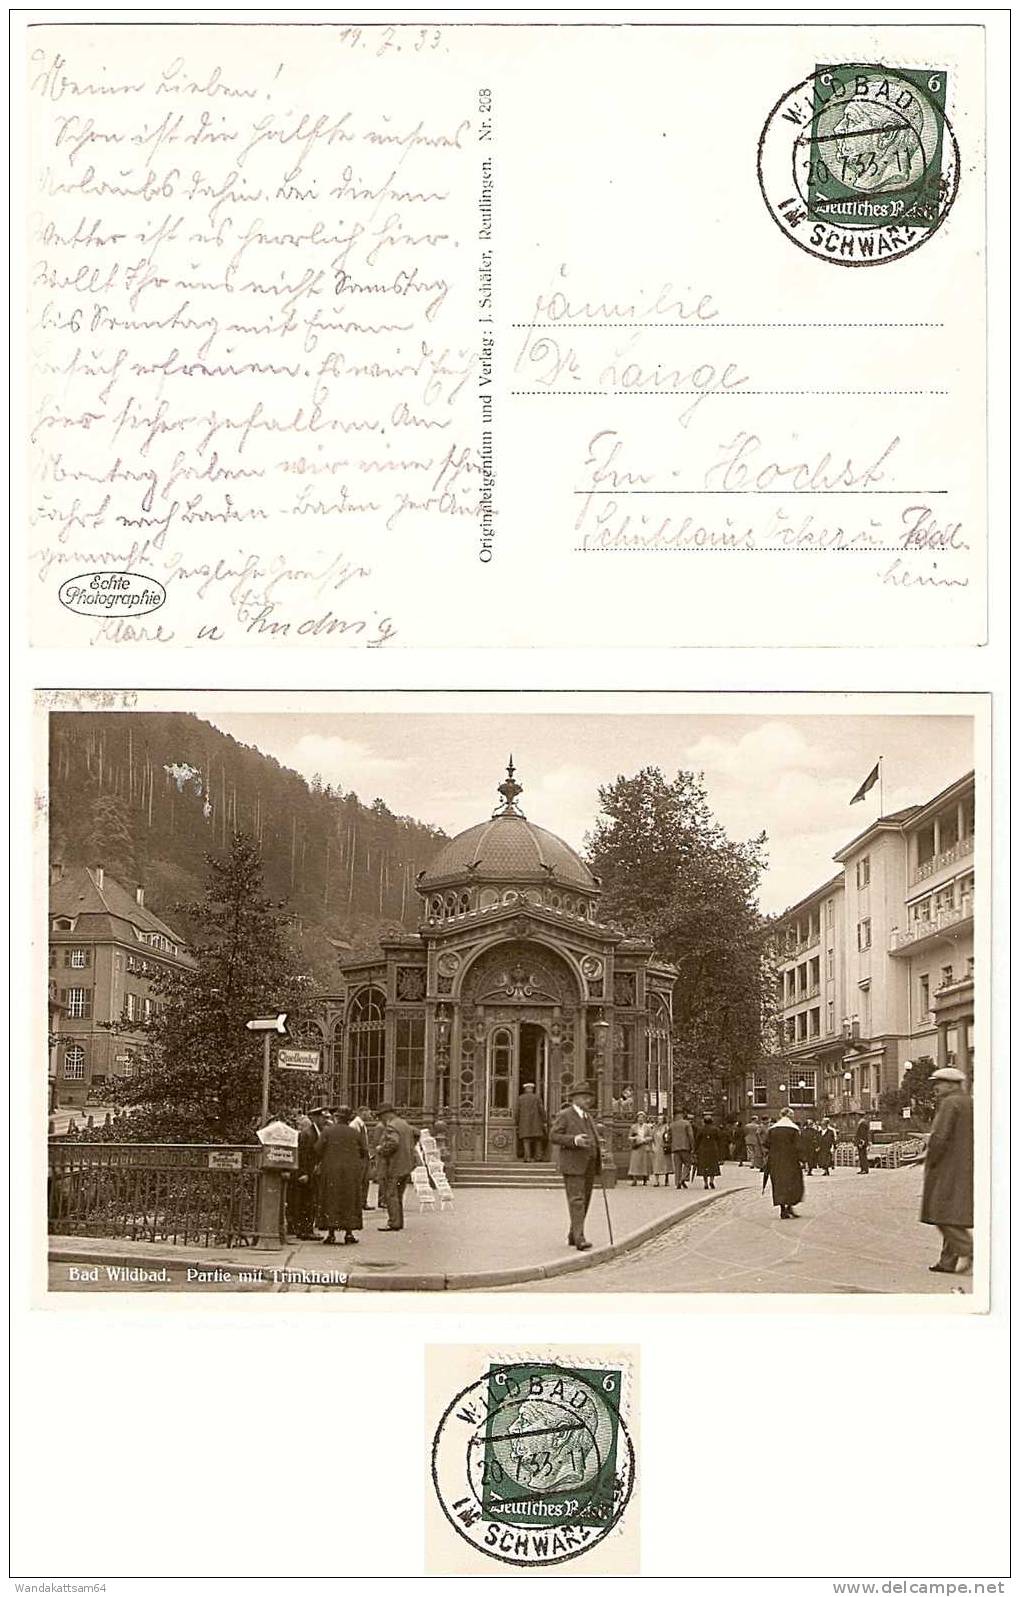 19. 7. 33.
Meine Lieben!
Schon ist die Hälfte unseres
Urlaubs dahin. Bei diesem
Wetter ist es herrlich hier.
Wollt Ihr uns nicht Samstag
bis Sonntag mit Eurem
Besuch erfreuen. Es wird Euch
hier sicher gefallen. Am
Montag haben wir eine schöne
Fahrt nach Baden-Baden per Auto
gemacht.
Herzliche Grüsse
Eure
Kläre u Ludwig
Echte
Photographie
Originaleigentum und Verlag: J. Schäfer, Reutlingen. Nr. 208
6 6
Deutsches Reich
WILDBAD
20.7.33.-11
IM SCHWARZ
Familie
Dr. Lange
Ffm - Höchst.
Schuhhaus
heim
Quellenhof
Bad Wildbad. Partie mit Trinkhalle
6 6
Deutsches Reich
WILDBAD
20.7.33.-11
IM SCHWARZ
Wandakattsam64
www.delcampe.net